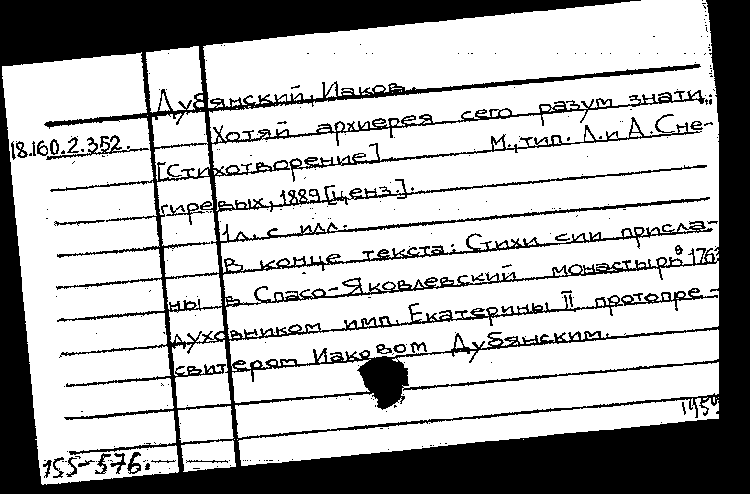 Дубянский, Иаков.
18.160.2.352.
Хотяй архиерея сего разум знати..
[Стихотворение]. М., тип. Л. и А. Сне-
гиревых, 1889 [ценз.].
1 л. с илл.
В конце текста: Стихи сии присла-
ны в Спасо-Яковлевский монастырь
духовником имп. Екатерины II протопре-
свитером Иаковом Дубянским.
155-576.